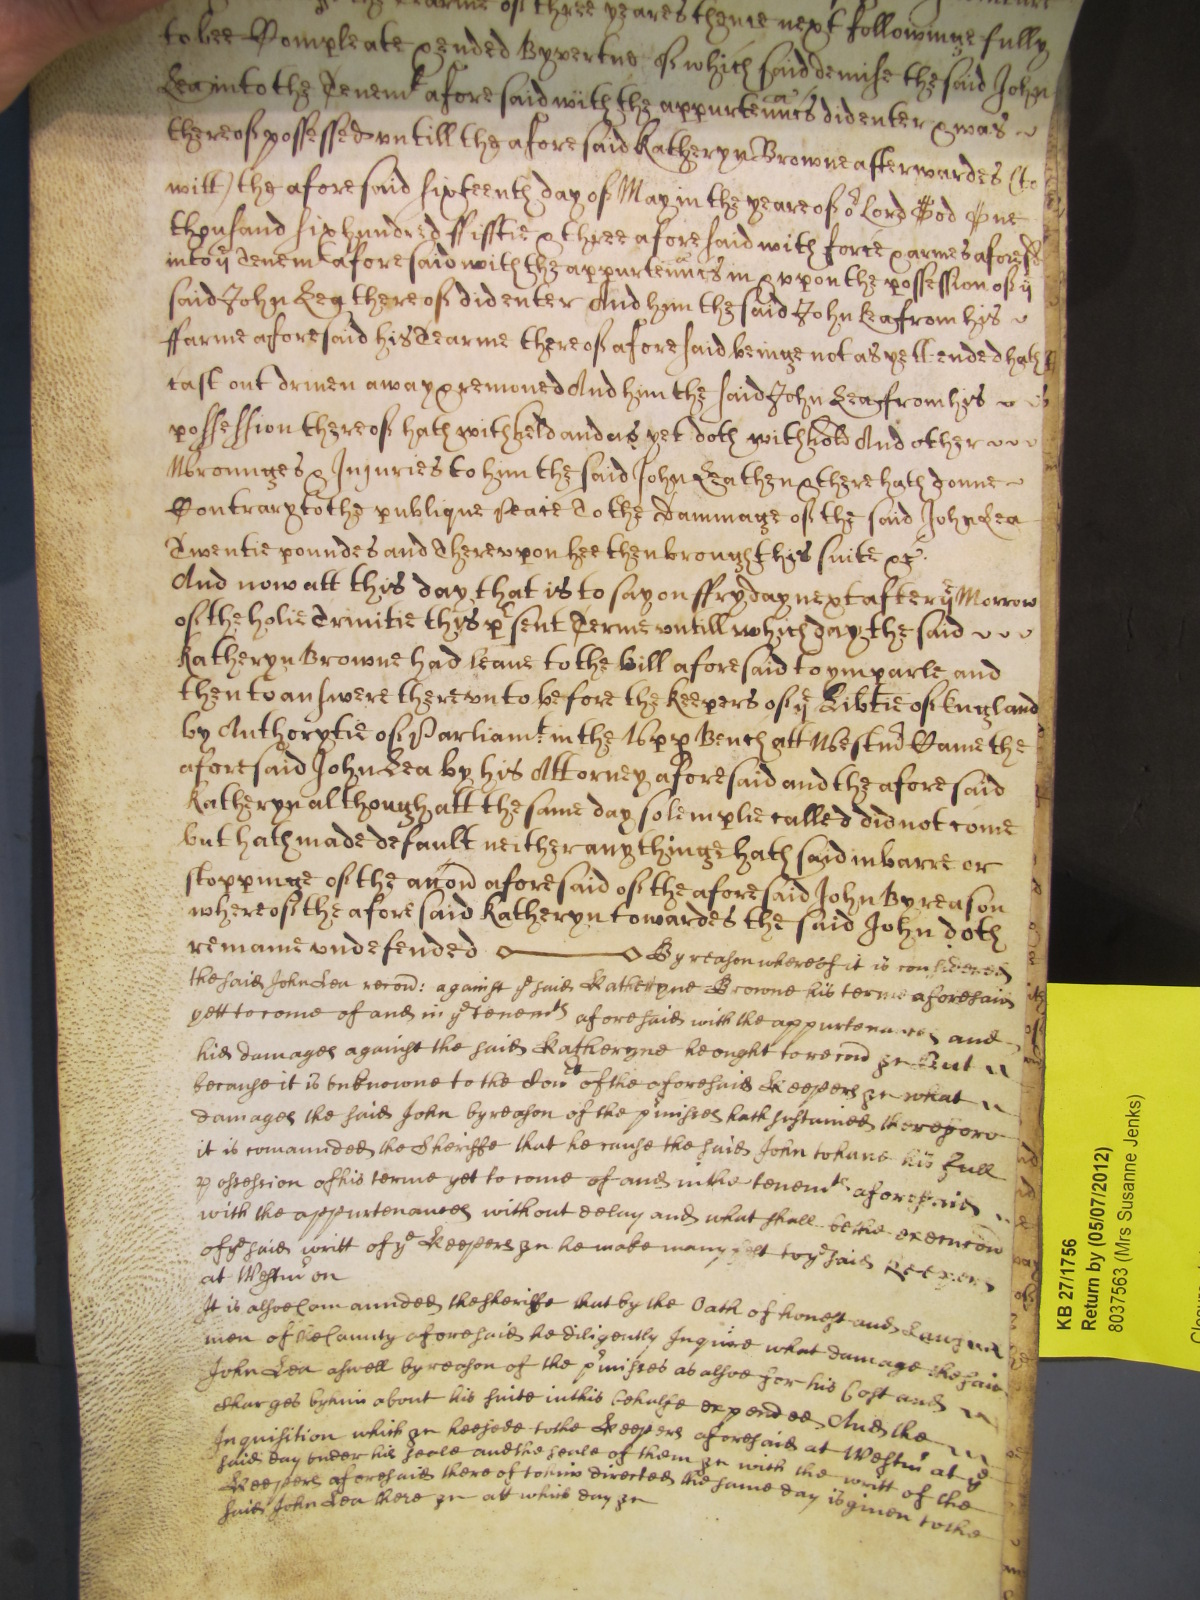 Tearme of three yeares thence next followinge fully
to bee Compleate & ended By vertue of which said demise the said John
Lea into the Tenemts aforesaid with the appurtenncs did enter & was
thereof possessed untill the aforesaid Katheryn Browne afterwardes (to
witt) the aforesaid sixteenth day of May in the yeare of or Lord God One
thousand six hundred ffiftie & three aforesaid with force & armes aforesd
into ye Tenemts aforesaid with the appurtenncs in & uppon the possession of ye
said John Lea thereof did enter And him the said John Lea from his
ffarme aforesaid his Tearme thereof aforesaid beinge not as yett ended hath
cast out driven away & removed And him the said John Lea from his
possession thereof hath withheld and as yet doth withhold And other
Wronnges & Injuries to him the said John Lea then & there hath donne
Contrary to the publique Peace To the Dammage of the said John Lea
Twentie poundes and Thereupon hee then brought his suite &c.
And now att this day that is to say on ffryday next after ye Morrow
of the holie Trinitie this prsent Terme untill which day the said
Katheryn Browne had leave to the bill aforesaid to ymparle and
then to answere thereunto before the Keepers of ye Libtie of England
by Authorytie of Parliamt in the Upp Bench att Westmr Came the
aforesaid John Lea by his Attorney aforesaid and the aforesaid
Katheryn although att the same day solemplie called did not come
but hath made default neither any thinge hath said in barre or
stoppinge of the accon aforesaid of the aforesaid John By reason
whereof the aforesaid Katheryn towardes the said John doth
remaine undefended By reason whereof it is considered
the said John Lea recour: against ye said Katheryne Browne his terme aforesaid
yett to come of and in ye tenemts aforesaid with the appurtenances and
his damages against the said Katheryne he ought to recour &c But
because it is unknowne to the Cort of the aforesaid Keepers &c what
damages the said John by reason of the prmisses hath susteined therefore
it is comaunded the Sheriffe that he cause the said John to have his full
possession of his terme yet to come of and in the tenemts aforesaid
with the appurtenances without delay and what shall be the execucon
of ye said writt of ye Keepers &c he make manyfest to ye said Keepers
at Westmr on
It is alsoe Comaunded the sheriffe that by the Oath of honest and Lawfull
men of his County aforesaid he diligently Inquire what damage the said
John Lea aswell by reason of the prmisses as alsoe for his Cost and
Charges by him about his suite in this behalfe expended And the
Inquisition which &c hee sende to the Keepers aforesaid at Westmr at ye
said day under his seale and the seale of them &c with the writt of the
Keepers aforesaid thereof to him directed the same day is given to the
said John Lea there &c att which day &c
KB 27/1756
Return by (05/07/2012)
8037563 (Mrs Susanne Jenks)